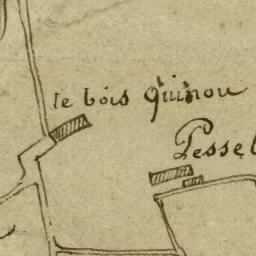 le bois quinou
Pessel